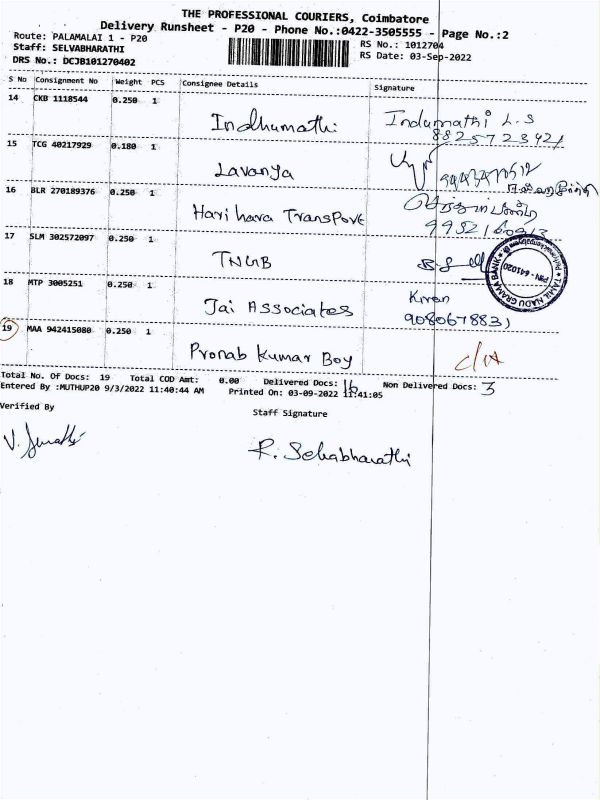 THE PROFESSIONAL COURIERS, Coimbatore
Delivery Runsheet - P20 - Phone No.:0422-3505555 - Page No.:2
Route: PALAMALAI 1 - P20
RS No.: 1012704
Staff: SELVABHARATHI
RS Date: 03-Sep-2022
DRS No.: DCJB101270402
S No Consignment No Weight PCS Consignee Details Signature
14 CKB 1118544 0.250 1
Indhumathi Indumathi L.S
8825723421
15 TCG 40217929 0.180 1
Lavanya
16 BLR 270189376 0.250 1
Hari hara Transport
17 SLM 302572097 0.250 1
TNGB
TAMIL NADU GRAMA BANK
PIN - 641020
18 MTP 3005251 0.250 1
Jai Associates Kiran
9080678831
19 MAA 942415080 0.250 1
Pronab Kumar Boy
Total No. Of Docs: 19 Total COD Amt: 0.00 Delivered Docs: 16 Non Delivered Docs: 3
Entered By :MUTHUP20 9/3/2022 11:40:44 AM Printed On: 03-09-2022 11:41:05
Verified By
Staff Signature
R. Selvabharathi